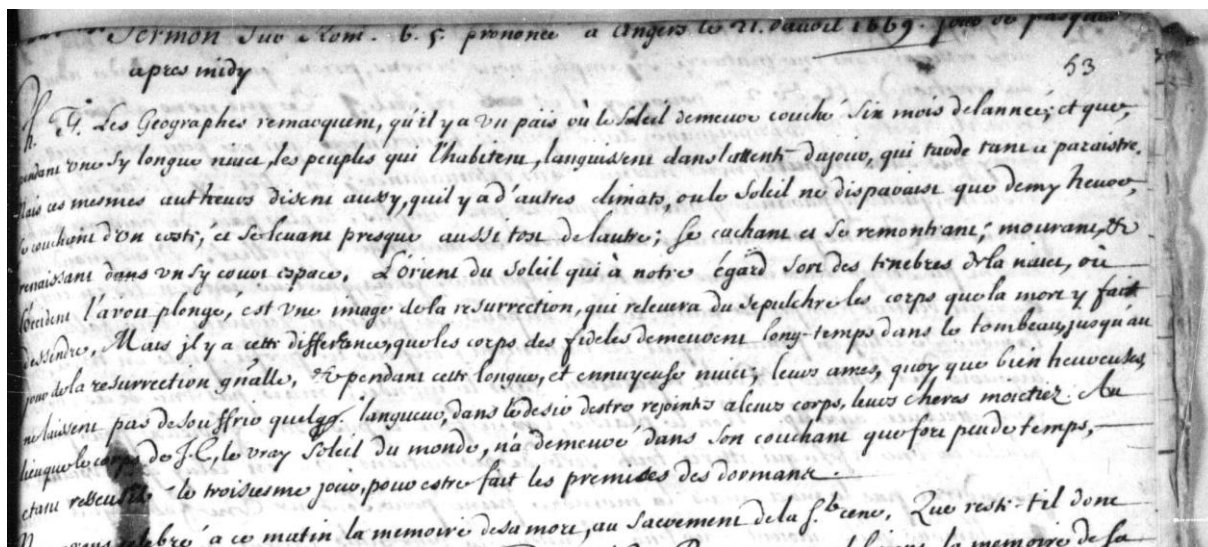 Sermon Sur Rom. 6. 5. prononcé a Angers le 21. davril 1669. jour de pasques
apres midy
53
Les Geographes remarquent, qu'il y a un pais où le Soleil demeure couché Six mois de lannée; et que,
pendant une sy longue nuict, les peuples qui l'habitent, languissent dans lattente du jour, qui tarde tant a paraistre.
Mais ces mesmes autheurs disent aussy, quil y a d'autres climats, ou le Soleil ne disparaist que demy heure,
se couchant d'un costé, et se levant presque aussi tost de lautre; se cachant et se remontrant; mourant, &
renaissant dans un sy court espace. L'orient du Soleil qui à notre égard sort des tenebres de la nuict, où
l'occident l'avoit plongé, est une image de la resurrection, qui relevera du sepulchre les corps que la mort y fait
dessendre. Mais il y a cette difference, que les corps des fideles demeurent long-temps dans le tombeau, jusqu'au
jour de la resurrection gnalle, & pendant cette longue, et ennuyeuse nuict, leurs ames, quoy que bien heureuses,
ne laissent pas de souffrir quelq langueur, dans le desir destre rejointes a leurs corps, leurs cheres moictiez. Au
lieu que le corps de J.C, le vray Soleil du monde, n'a demeuré dans son couchant que fort peu de temps,
etant resscuscité le troisiesme jour, pour estre fait les premices des dormants.
celebré a ce matin la memoire de sa mort, au Sacrement de la Ste cene. Que reste-t-il donc
la memoire de sa